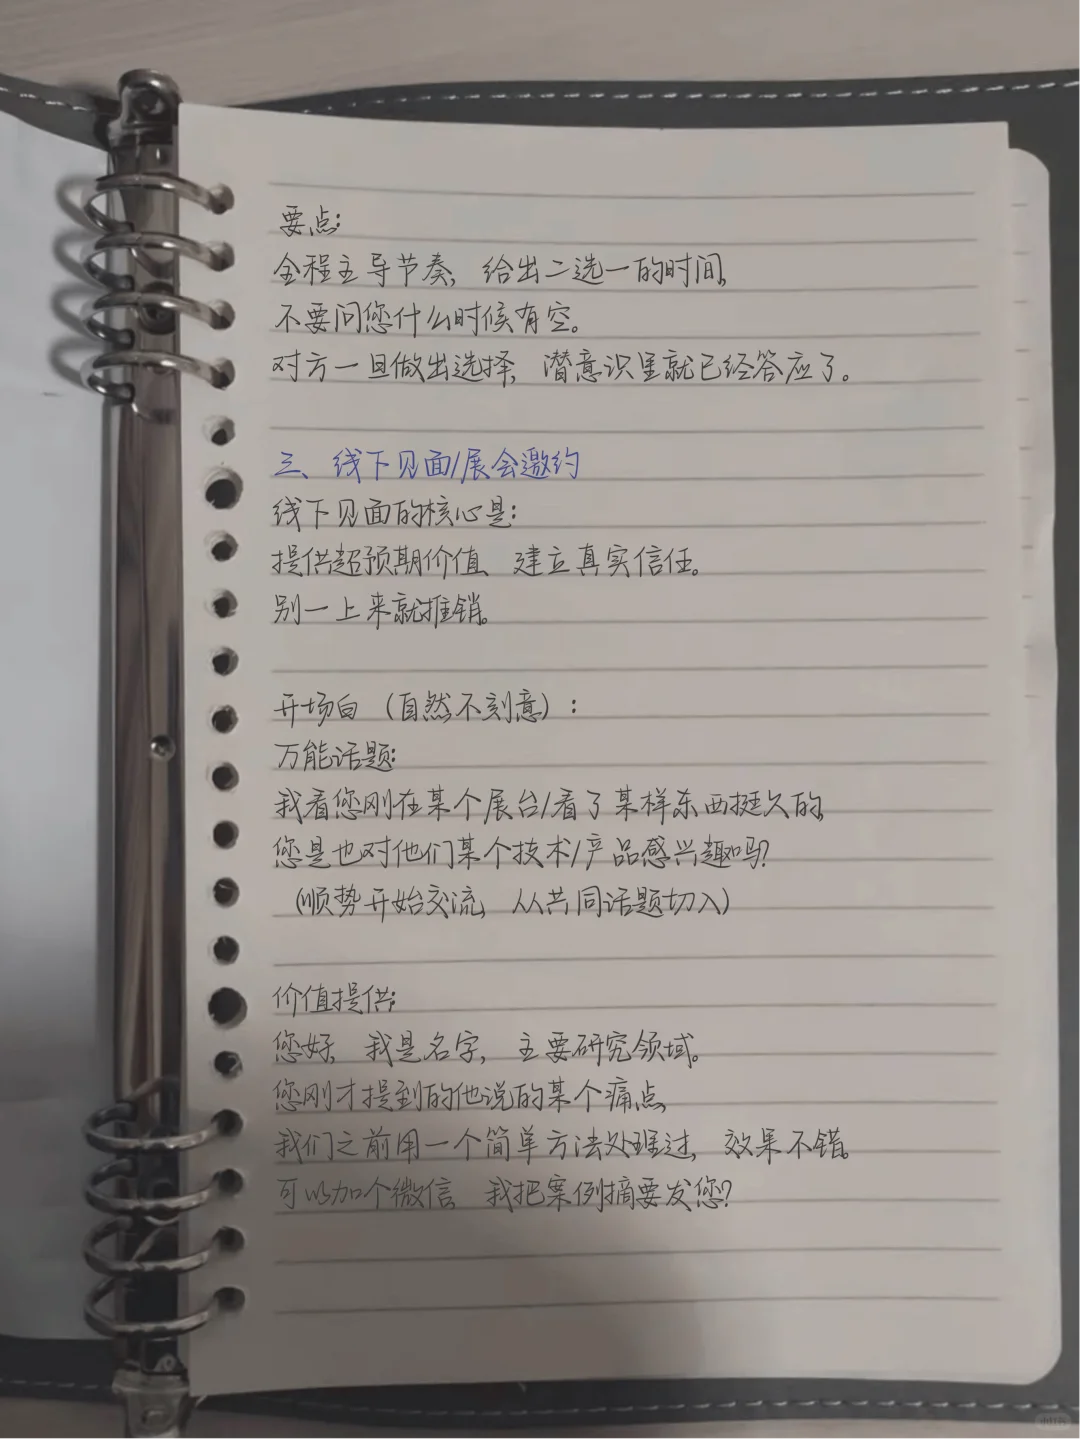 要点:
全程主导节奏, 给出二选一的时间,
不要问您什么时候有空。
对方一旦做出选择, 潜意识里就已经答应了。
三、线下见面/展会邀约
线下见面的核心是:
提供超预期价值、建立真实信任。
别一上来就推销。
开场白（自然不刻意）:
万能话题:
我看您刚在某个展台/看了某样东西挺久的,
您是也对他们某个技术/产品感兴趣吗?
(顺势开始交流, 从共同话题切入)
价值提供:
您好, 我是名字, 主要研究领域。
您刚才提到的他说的某个痛点,
我们之前用一个简单方法处理过, 效果不错。
可以加个微信, 我把案例摘要发您?